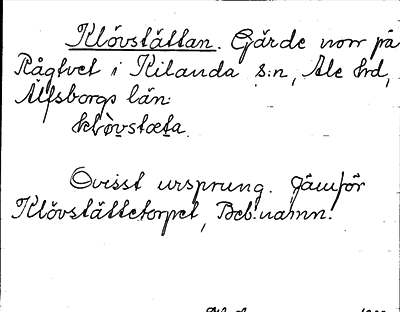 Klövstättan. Gärde norr på
Rågtvet i Kilanda s:n, Ale hrd,
Älfsborgs län.
klòvstæta
Ovisst ursprung. Jämför
Klövstättetorpet, Beb.namn.